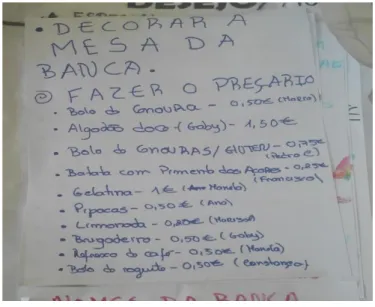 DESEJO/
• DECORAR A
MESA DA
BANCA.
② FAZER O PREÇÁRIO
• Bolo de CENOURA - 0,50€ (Marco)
• Algodão doce - (Gaby) - 1,50€
Bolo de CENOURAS/GLUTEN - 0,75€
(Pedro C)
• Batata com Pimenta dos Açores - 0,25€
(Francisra)
• Gelatina - 1€ (Manela)
• Pipocas - 0,50€ (Ana)
• Limonada - 0,20€ (Marissa)
• Brigadeiro - 0,50€ (Gaby)
• Refresco de café - 0,50€ (Manela)
• Bolo de iogurte - 0,50€ (Constança)
NOMES DA BANCA